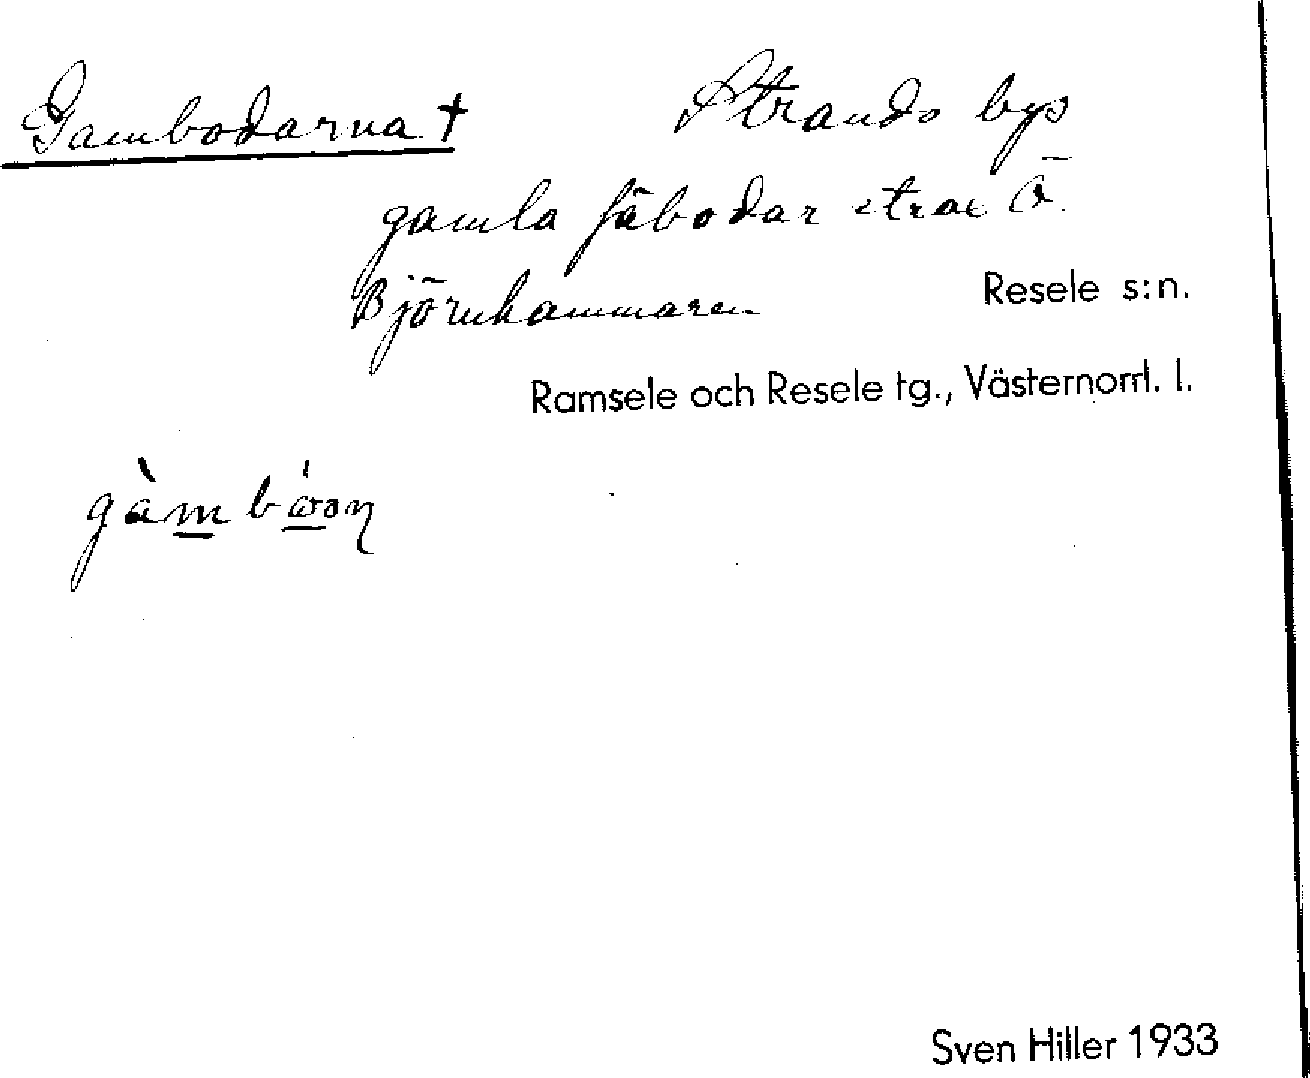 Gambodarna † Strands bys
gamla fäbodar strax Ö.
Björnhammaren Resele s:n.
Ramsele och Resele tg., Västernorrl. l.
Sven Hiller 1933